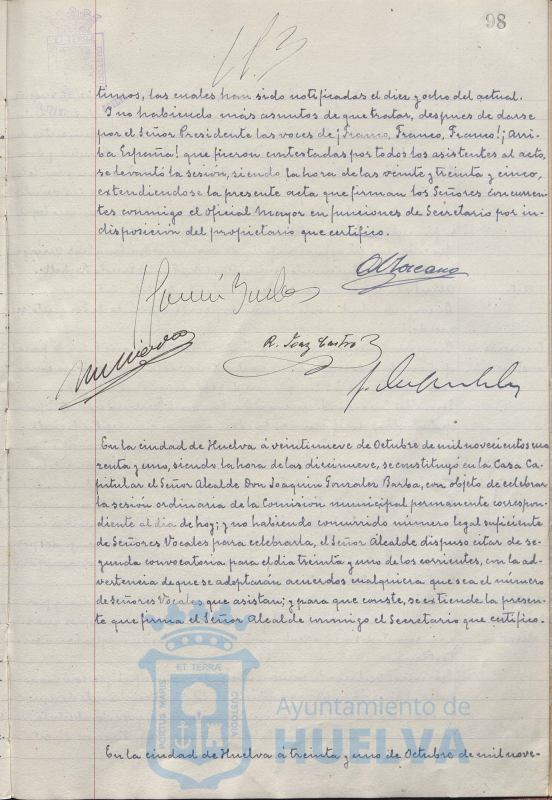 98
timos, las cuales han sido notificadas el diez y ocho del actual.
Y no habiendo más asuntos de que tratar, despues de darse
por el Señor Presidente las voces de ¡Franco, Franco, Franco! ¡Arri-
ba España! que fueron contestadas por todos los asistentes al acto,
se levantó la sesión, siendo la hora de las veinte y treinta y cinco,
extendiendose la presente acta que firman los Señores concurren-
tes conmigo el Oficial Mayor en funciones de Secretario por in-
disposición del propietario que certifico.
En la ciudad de Huelva á veintinueve de Octubre de mil novecientos cua
renta y uno, siendo la hora de las diecinueve, se constituyó en la Casa Ca-
pitular el Señor Alcalde Don Joaquin Gonzalez Barba, con objeto de celebrar
la sesión ordinaria de la Comisión municipal permanente correspon-
diente al día de hoy; y no habiendo concurrido número legal suficiente
de Señores Vocales para celebrarla, el Señor Alcalde dispuso citar de se-
gunda convocatoria para el día treinta y uno de los corrientes, con la ad-
vertencia de que se adoptarán acuerdos cualquiera que sea el número
de Señores Vocales que asistan; y para que conste, se extiende la presen-
te que firma el Señor Alcalde conmigo el Secretario que certifico.
ET TERRÆ
PORTUS MARIS
CUSTODIA
Ayuntamiento de
HUELVA
En la ciudad de Huelva á treinta y uno de Octubre de mil nove-